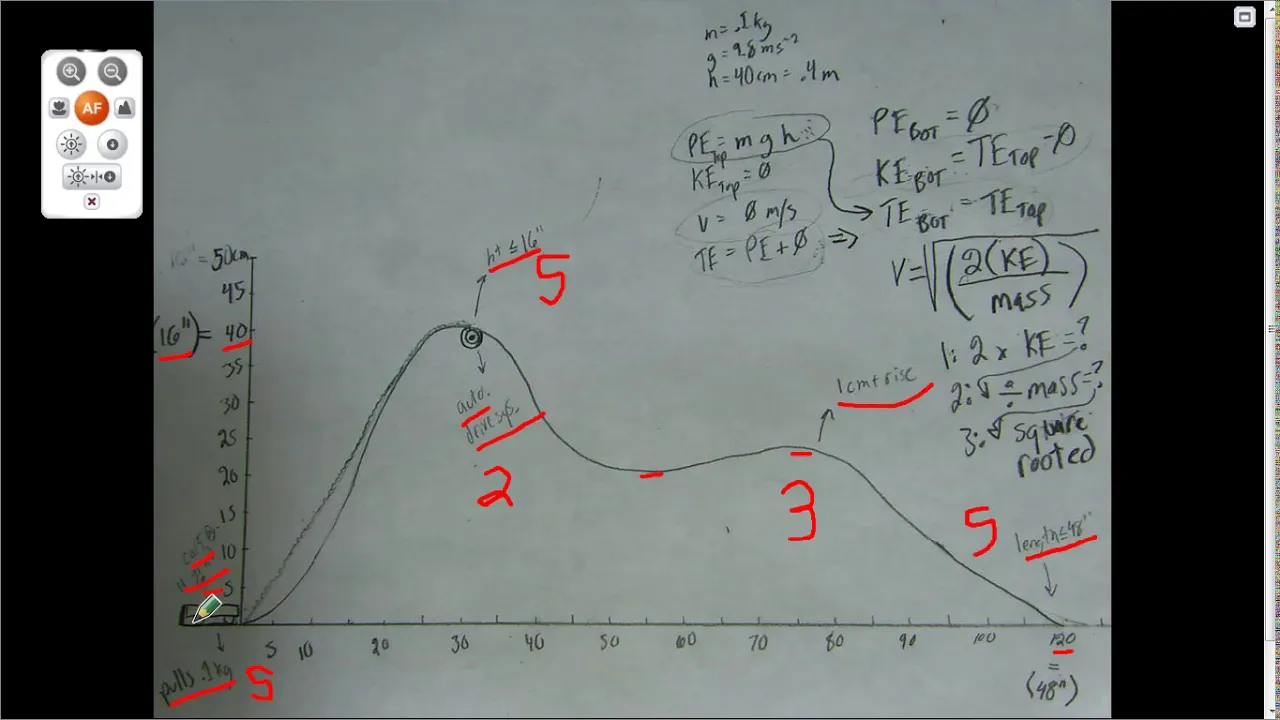 m = .1 kg
g = 9.8 ms⁻²
h = 40 cm = .4 m
PE Top = m g h
KE Top = 0
V = 0 m/s
TE = PE + 0 =>
PE BOT = 0
KE BOT = TE TOP - 0
TE BOT = TE TOP
V = √(2(KE) / MASS)
1: 2 x KE = ?
2: ÷ mass = ?
3: square
rooted
AF
ht ≤ 16"
5
50cm
45
(16") = 40
35
30
25
20
15
10
5
auto.
drive sys.
2
1 cm + rise
3
5
length ≤ 48"
5 10 20 30 40 50 60 70 80 90 100 120
=
(48")
pulls .1 kg
5